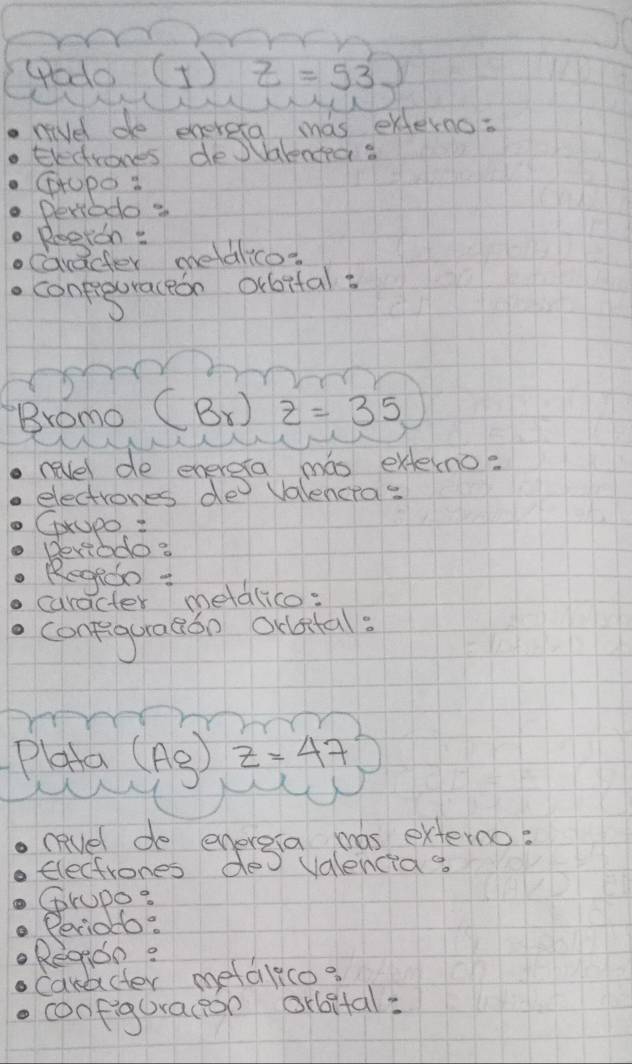 Yodo (I) Z = 53
• nivel de energía más externo:
• Electrones de Valencia:
• Grupo:
• Período:
• Región:
• carácter metálico:
• configuración orbital:
Bromo (Br) Z = 35
• nivel de energía más externo:
• electrones de Valencia:
• Grupo:
• Período:
• Región:
• carácter metálico:
• configuración Orbital:
Plata (Ag) Z = 47
• nivel de energía más externo:
• Electrones de Valencia:
• Grupo:
• Periodo:
• Región:
• carácter metálico:
• configuración orbital: